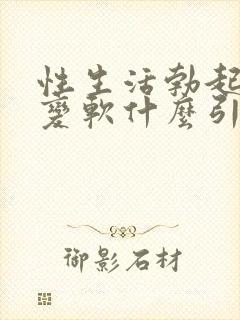 性生活勃起
變軟什麼引
御影石材